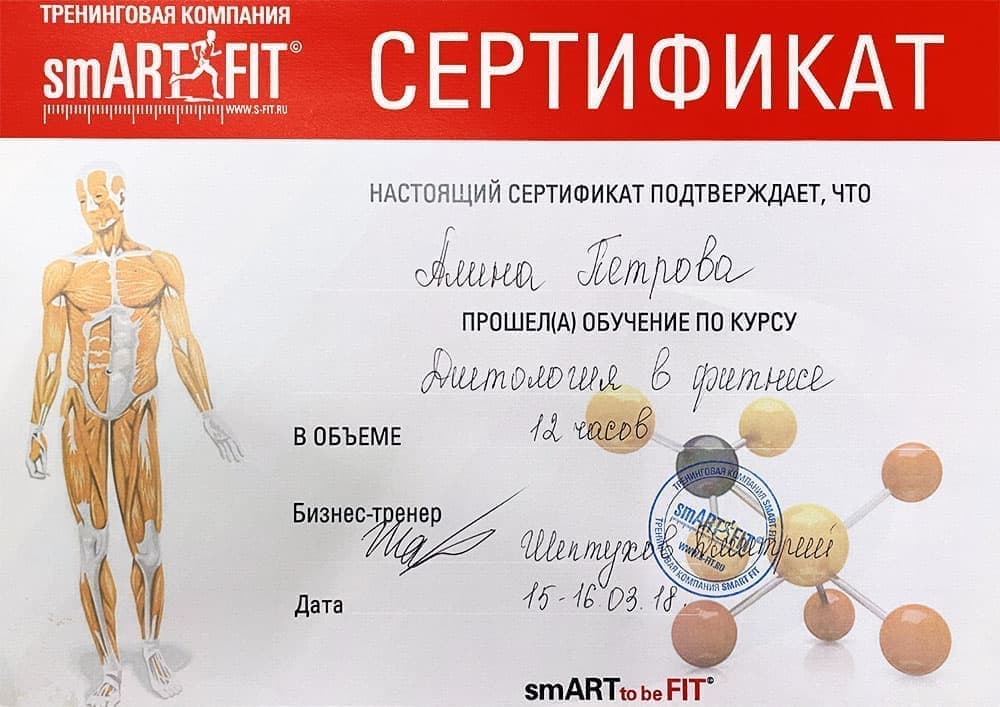 ТРЕНИНГОВАЯ КОМПАНИЯ
smARTFIT©
WWW.S-FIT.RU
СЕРТИФИКАТ
НАСТОЯЩИЙ СЕРТИФИКАТ ПОДТВЕРЖДАЕТ, ЧТО
Алина Петрова
ПРОШЕЛ(А) ОБУЧЕНИЕ ПО КУРСУ
Диетология в фитнесе
В ОБЪЕМЕ 12 часов
Бизнес-тренер Шептухов Дмитрий
ТРЕНИНГОВАЯ КОМПАНИЯ SMART FIT
smARTFIT©
WWW.S-FIT.RU
ТРЕНИНГОВАЯ КОМПАНИЯ SMART FIT
Дата 15-16.03.18.
smART to be FIT©